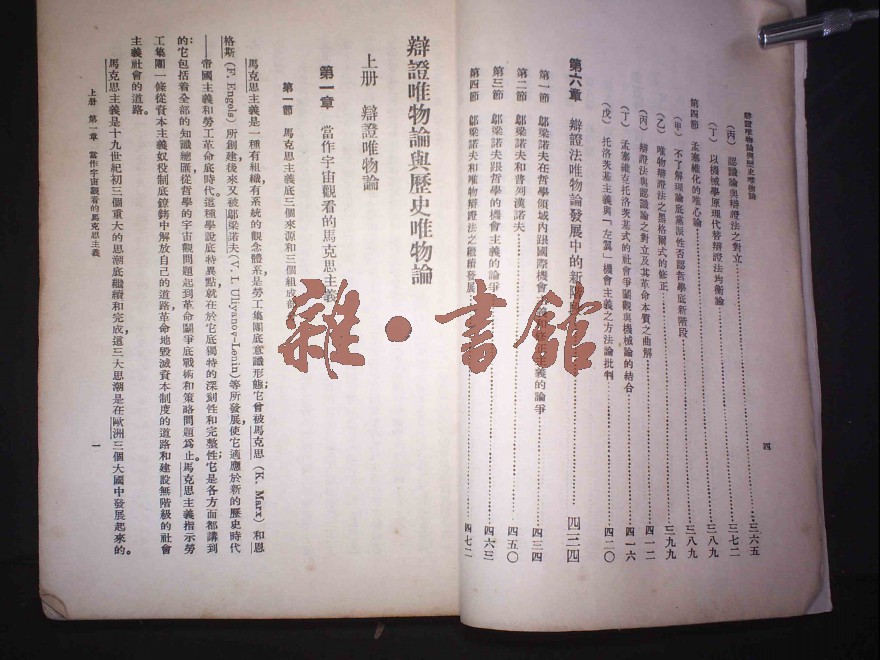 辯證唯物論與歷史唯物論
(丙) 認識論與辯證法之對立 三六五
(丁) 以機械學原理代替辯證法均衡論 三七二
第四節 孟塞維化的唯心論 三八九
(甲) 不了解理論底黨派性否認哲學底新階段 三八九
(乙) 唯物辯證法之黑格爾式的修正 三九九
(丙) 辯證法與認識論之對立及其革命本質之曲解 四一二
(丁) 孟塞維托洛茨基式的社會爭鬭觀與機械論的結合 四一六
(戊) 托洛茨基主義與「左翼」機會主義之方法論批判 四二〇
第六章 辯證法唯物論發展中的新階 四三四
第一節 鄔梁諾夫在哲學領域內跟國際機會 義的論爭 四三四
第二節 鄔梁諾夫和普列漢諾夫 四五〇
第三節 鄔梁諾夫跟哲學的機會主義的論爭 四六三
第四節 鄔梁諾夫和唯物辯證法之繼續發展 四七二
四
辯證唯物論與歷史唯物論
上册 辯證唯物論
第一章 當作宇宙觀看的馬克思主義
第一節 馬克思主義底三個來源和三個組成
馬克思主義是一種有組織有系統的觀念體系,是勞工集團底意識形態;它曾被馬克思 (K. Marx) 和恩
格斯 (F. Engels) 所創建,後來又被鄔梁諾夫 (V. I. Uliyanov-Lenin) 等所發展,使它適應於新的歷史時代
——帝國主義和勞工革命底時代。這種學說底特異點,就在於它底獨特的深刻性和完整性;它是各方面都講到
的;它包括着全部的知識總匯,從哲學的宇宙觀問題起到革命鬭爭底戰術和策略問題爲止。馬克思主義指示勞
工集團一條從資本主義奴役制底鐐銬中解放自己的道路,革命地毀滅資本制度的道路和建設無階級的社會
主義社會的道路。
馬克思主義是十九世紀初三個重大的思潮底繼續和完成,這三大思潮是在歐洲三個大國中發展起來的。
上册 第一章 當作宇宙觀看的馬克思主義
一
雜·書館